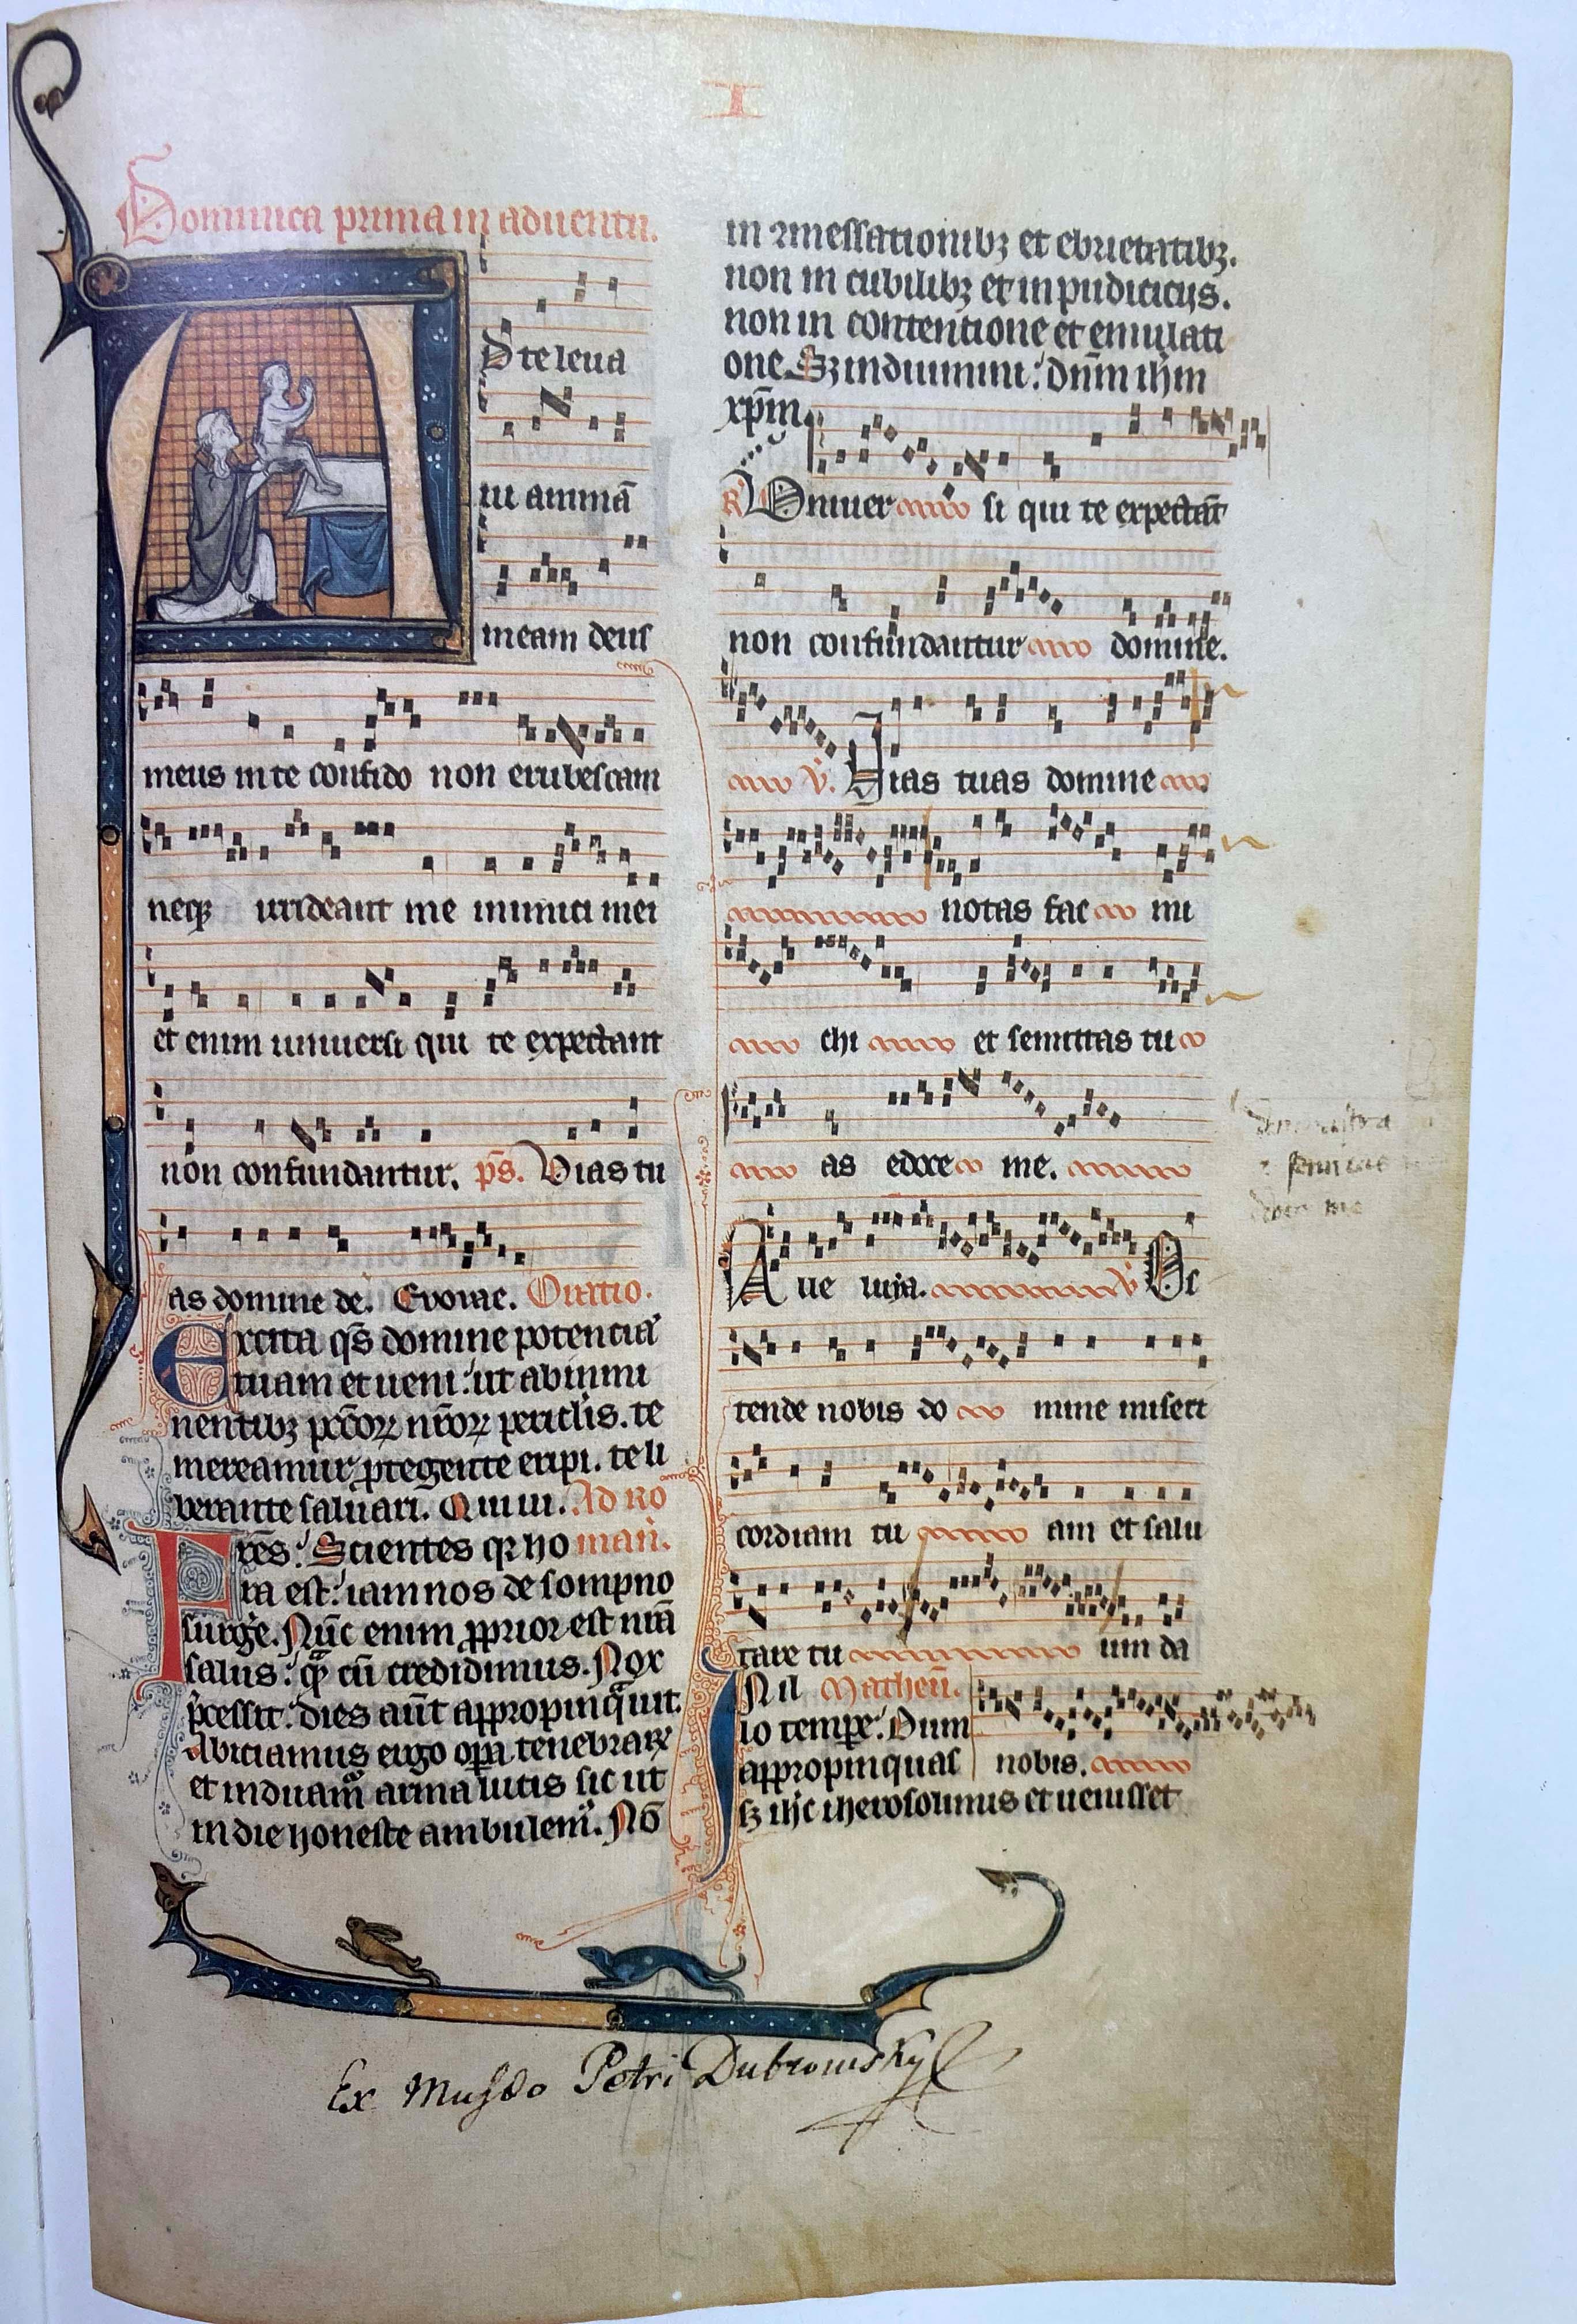 I
Dominica prima in aduentu.
D te leua
ui animā
meam deus
meus in te confido non erubescam
neqꝫ irrideant me inimici mei
et enim uniuersi qui te expectant
non confundantur. ps̄. Vias tu
as domine de. Evovae. Oratio.
Excita qs̄ domine potenciā
tuam et ueni: ut ab immi
nentibꝫ pccōꝝ nrōꝝ periclīs. te
mereamur ꝓtegente eripi. te li
berante saluari. Qui uiu. Ad Ro
Frēs: Scientes qꝛ ho man̄.
ra est: iam nos de sompno
surgē. Nūc enim ꝓprior est nrā
salus: qᷓ cū credidimus. Nox
p̄cessit: dies aūt appropinqᷓuit.
Abiciamus ergo oꝑa tenebraꝝ
et induamꝰ arma lucis sic ut
in die honeste ambulemꝰ. Nō
in ꝯmessationibꝫ et ebrietatibꝫ.
non in cubilibꝫ et inpudiciciis.
non in contentione et emulati
one. Sꝫ induimini: dn̄m ihm̄
xpm̄.
R Vniuer si qui te expectāt
non confundantur domine.
V. Vias tuas domine
notas fac mi
chi et semitas tu
as edoce me.
demonstra
semitas
doce me
A lle luya. V Os
tende nobis do mine miseri
cordiam tu am et salu
tare tu um da
In il Matheū.
lo tempe: Dum
appropinquas nobis.
sꝫ ihc iherosolimis et uenisset
Ex Musæo Petri Dubrowsky